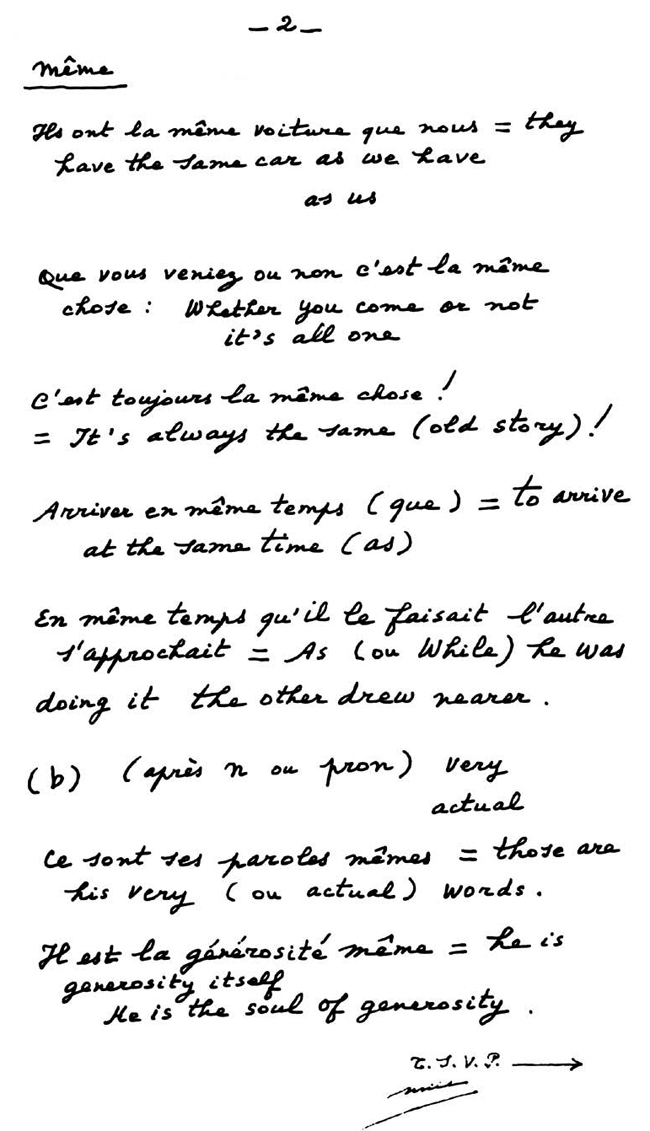 – 2 –
Même
Ils ont la même voiture que nous = they
have the same car as we have
as us
Que vous veniez ou non c'est la même
chose : Whether you come or not
it's all one
C'est toujours la même chose !
= It's always the same (old story) !
Arriver en même temps (que) = to arrive
at the same time (as)
En même temps qu'il le faisait l'autre
s'approchait = As (ou While) he was
doing it the other drew nearer.
(b) (après n ou pron) very
actual
Ce sont ses paroles mêmes = those are
his very (ou actual) words.
Il est la générosité même = he is
generosity itself
He is the soul of generosity.
T.S.V.P. →